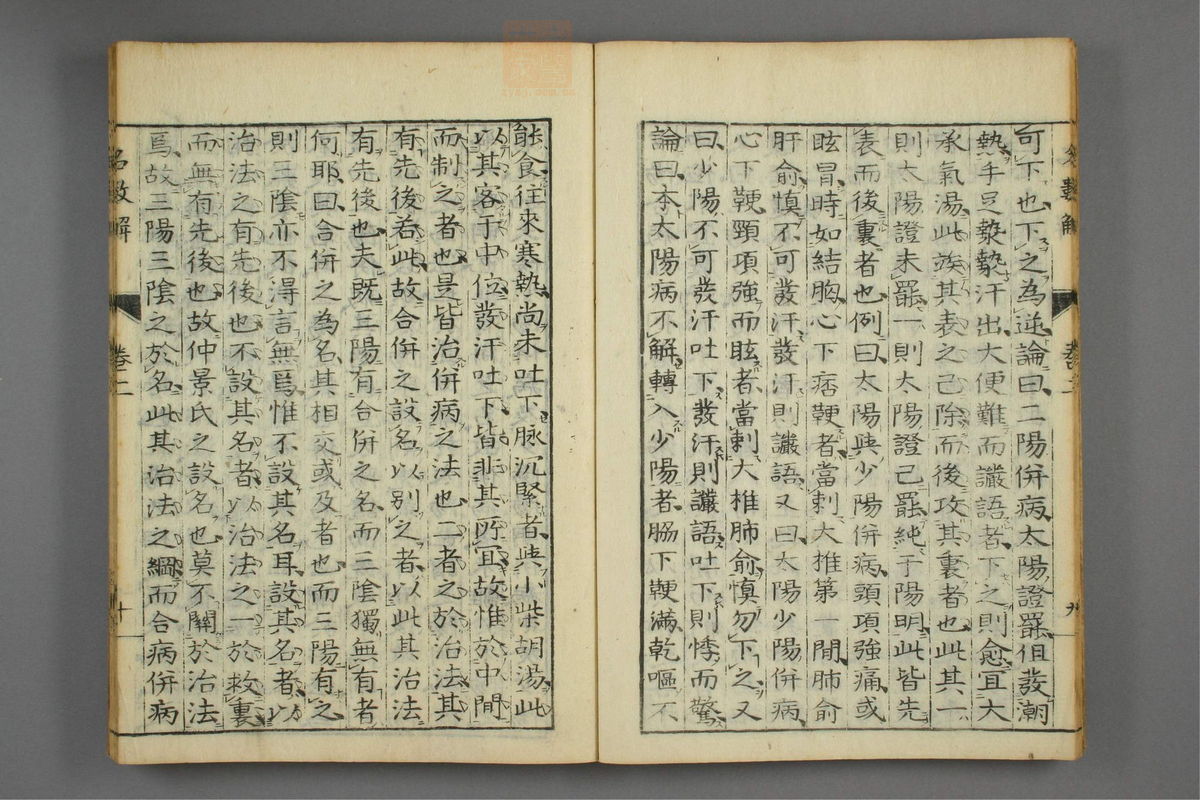 可下也下之為逆論曰二陽併病太陽證罷但發潮
熱手足漐漐汗出大便難而讝語者下之則愈宜大
承氣湯此竢其表之已除而後攻其裏者也此其一
則太陽證未罷一則太陽證已罷純于陽明此皆先
表而後裏者也例曰太陽與少陽併病頭項強痛或
眩冒時如結胸心下痞鞕者當刺大椎第一間肺俞
肝俞慎不可發汗發汗則讝語又曰太陽少陽併病
心下鞕頸項強而眩者當刺大椎肺俞慎勿下之又
曰少陽不可發汗吐下發汗則讝語吐下則悸而驚
論曰本太陽病不解轉入少陽者脇下鞕滿乾嘔不
卷二
九
能食往來寒熱尚未吐下脉沉緊者與小柴胡湯此
以其客于中位發汗吐下皆非其所宜故惟於中間
而制之者也是皆治併病之法也二者之於治法其
有先後若此故合併之設名以別之者以此其治法
有先後也夫既三陽有合併之名而三陰獨無有者
何耶曰合併之為名其相交或及者也而三陽有之
則三陰亦不得言無焉惟不設其名耳設其名者以
治法之有先後也不設其名者以治法之一於救裏
而無有先後也故仲景氏之設名也莫不關於治法
焉故三陽三陰之於名此其治法之綱而合病併病
名數解
卷二
十